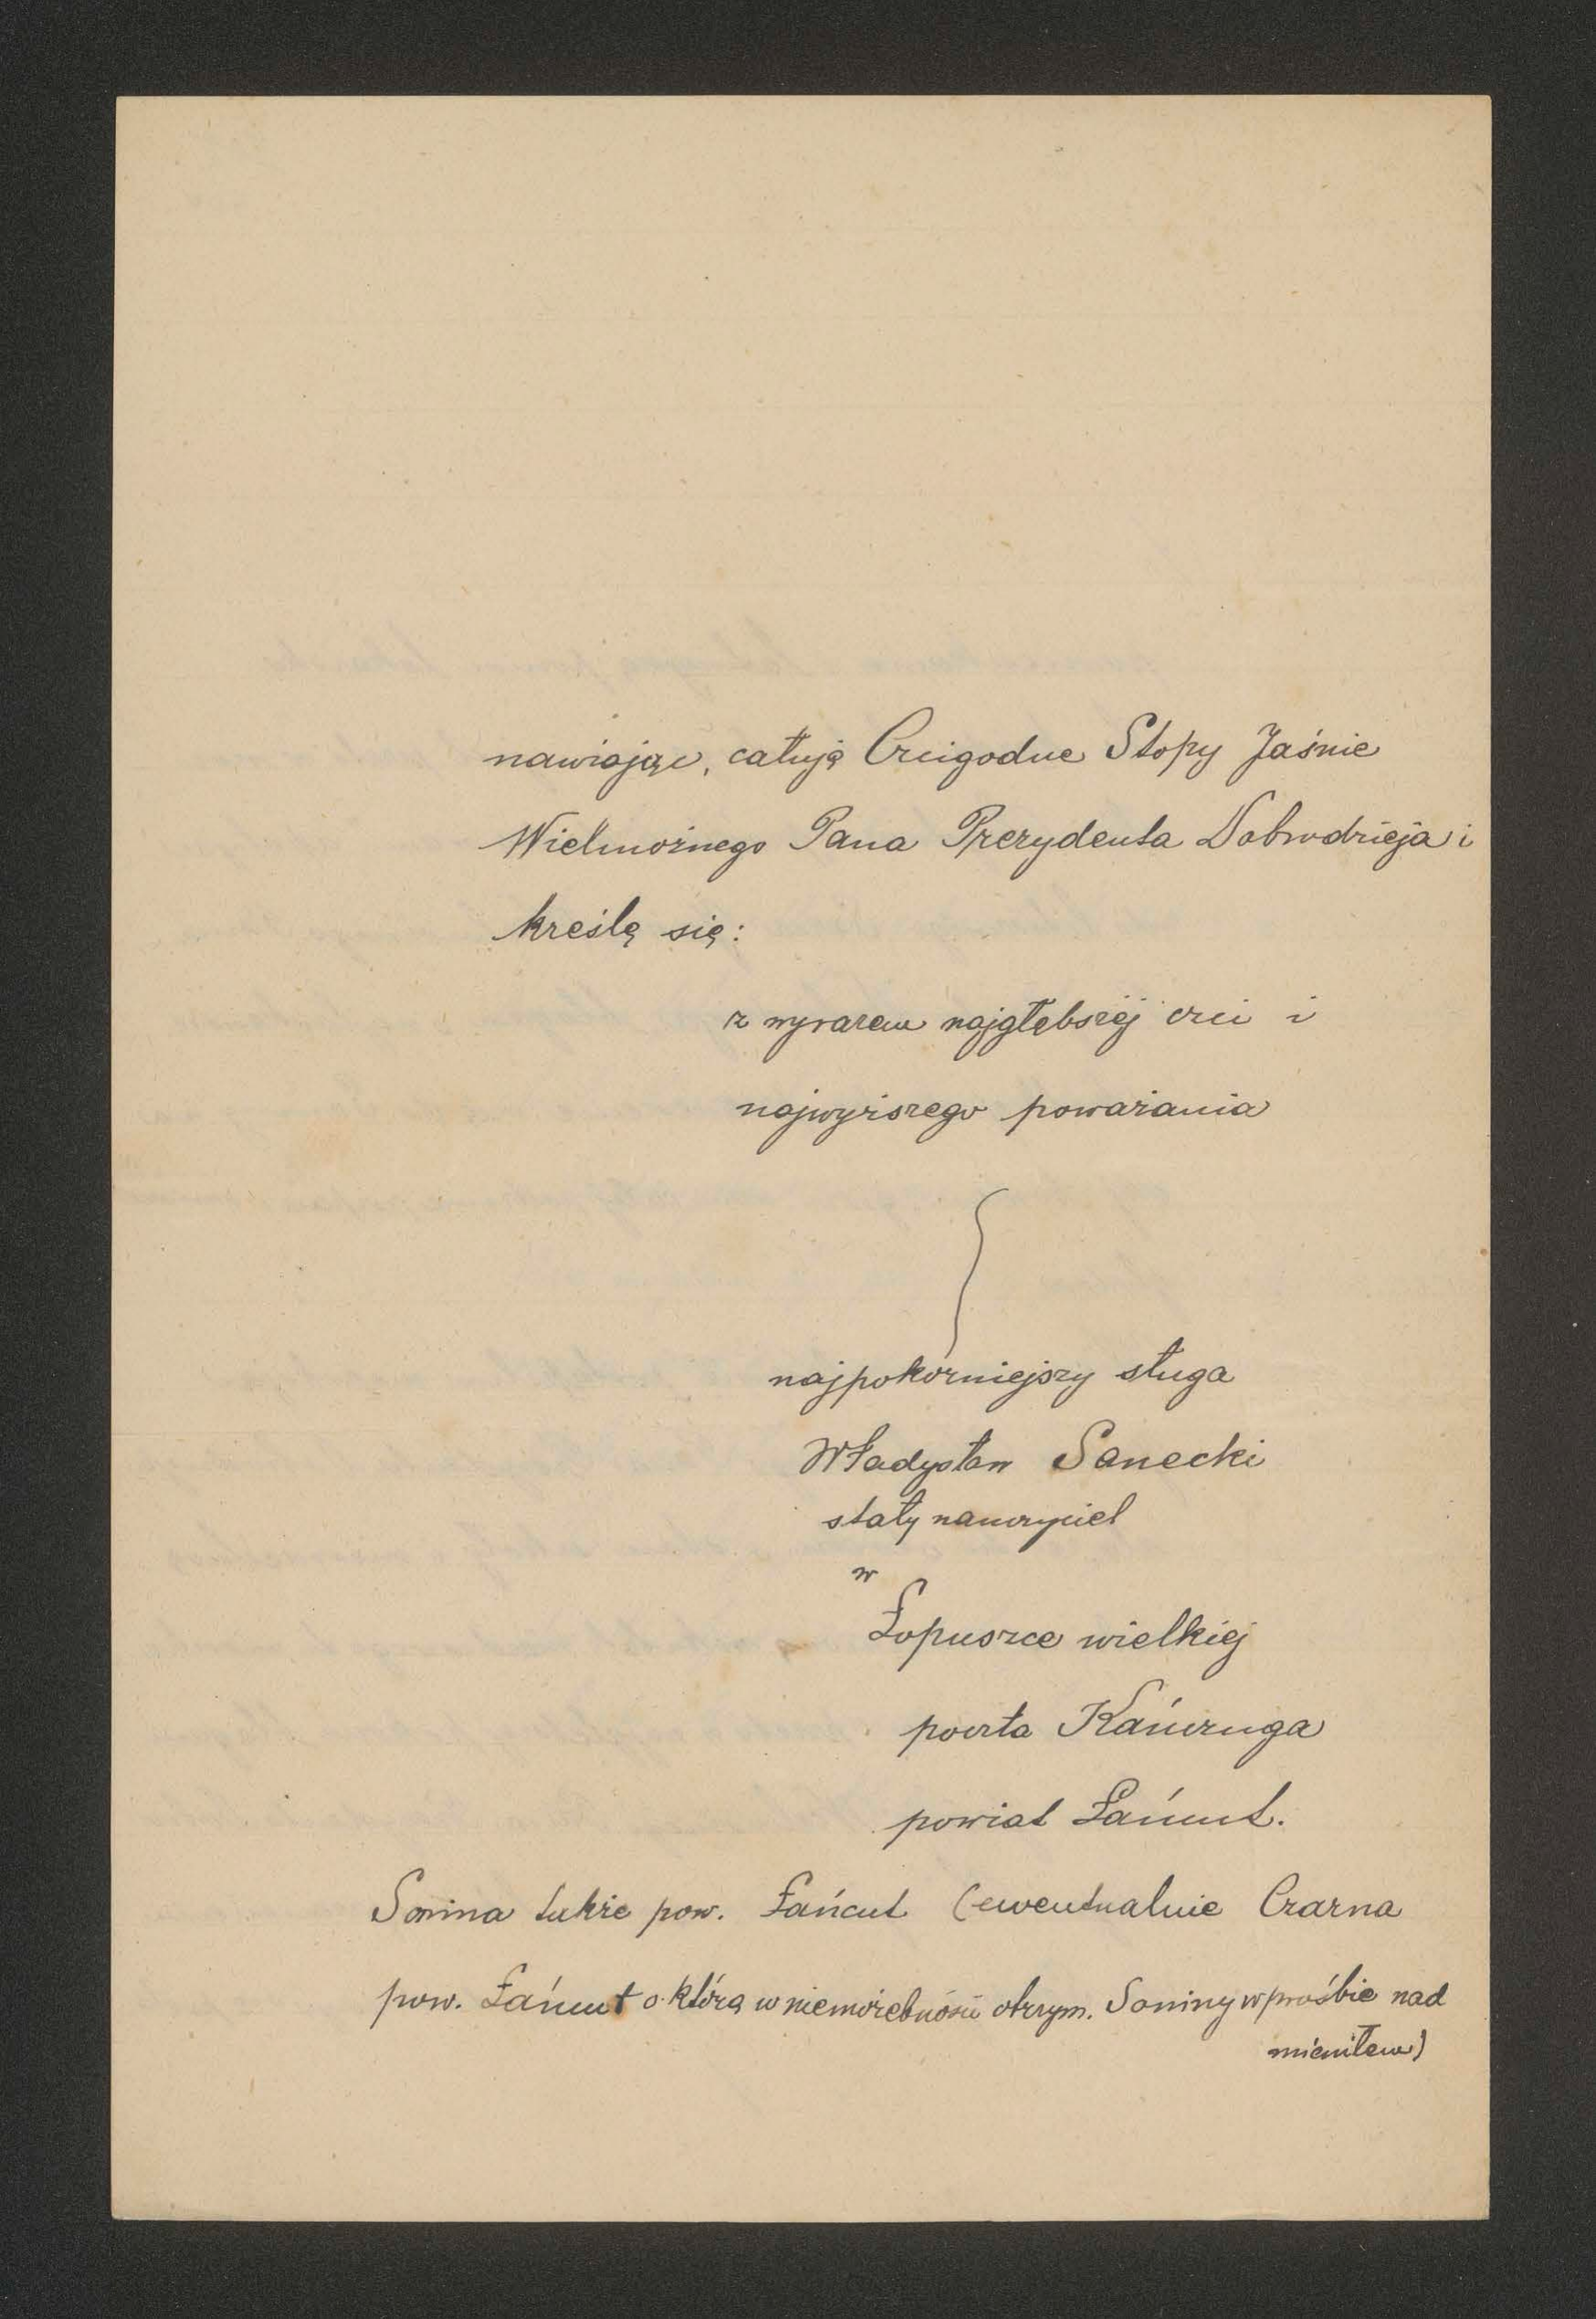 nawiając, całuję Czcigodne Stopy Jaśnie
Wielmożnego Pana Prezydenta Dobrodzieja i
kreślę się:
z wyrazem najgłębszéj czci i
najwyższego poważania
najpokorniejszy sługa
Władysław Sanecki
stały nauczyciel
w
Łopuszce wielkiéj
poczta Kańczuga
powiat Łańcut.
Sonina także pow. Łańcut (ewentualnie Czarna
pow. Łańcut o którą w niemożebności otrzym. Soniny w prośbie nad
mieniłem)